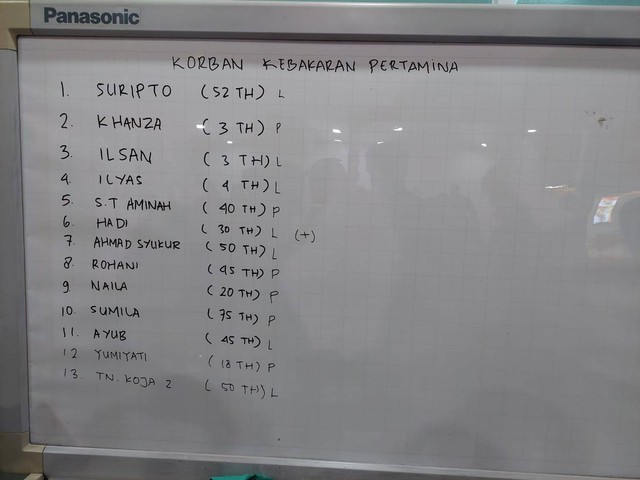 Panasonic
KORBAN KEBAKARAN PERTAMINA
1. SURIPTO (52 TH) L
2. KHANZA (3 TH) P
3. ILSAN (3 TH) L
4. ILYAS (4 TH) L
5. S.T AMINAH (40 TH) P
6. HADI (30 TH) L (+)
7. AHMAD SYUKUR (50 TH) L
8. ROHANI (45 TH) P
9 NAILA (20 TH) P
10. SUMILA (75 TH) P
11. AYUB (45 TH) L
12 YUMIYATI (18 TH) P
13. TN. KOJA 2 (50 TH) L